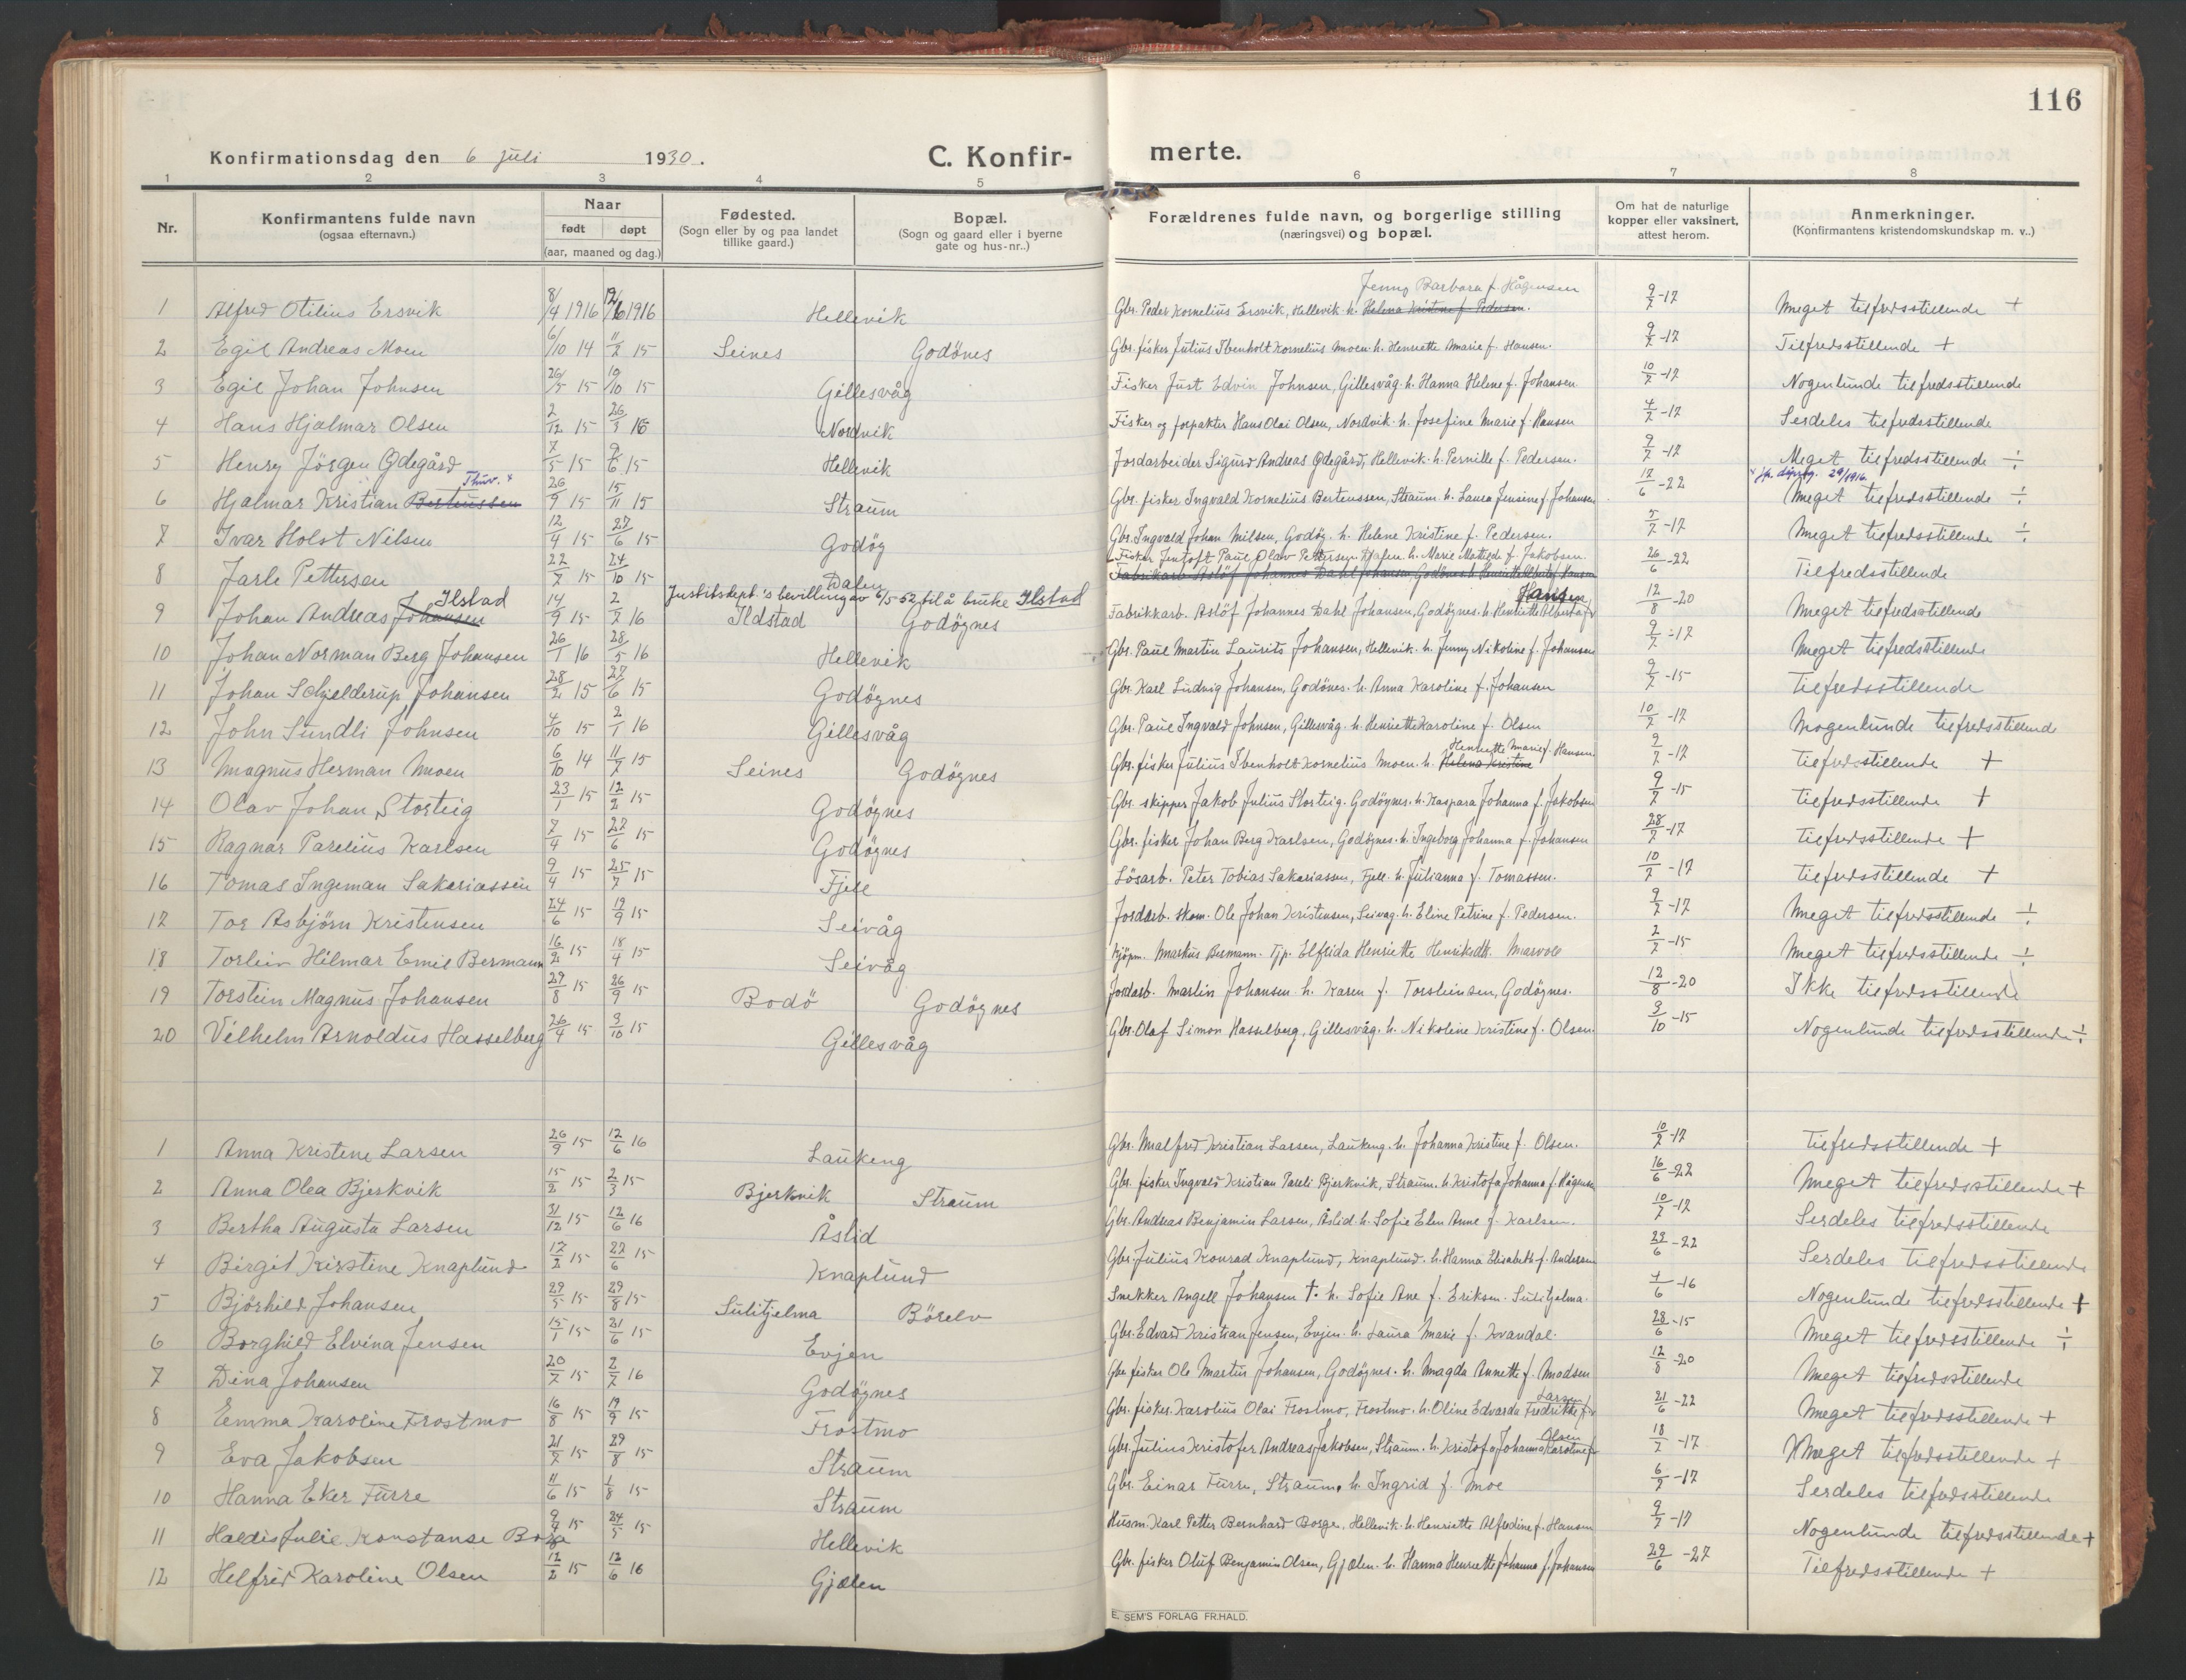 116
Konfirmationsdag den 6 juli 1930. C. Konfir- merte.
1 2 3 4 5 6 7 8
Nr. Konfirmantens fulde navn (ogsaa efternavn.) Naar født døpt (aar, maaned og dag.) Fødested. (Sogn eller by og paa landet tillike gaard.) Bopæl. (Sogn og gaard eller i byerne gate og hus-nr..) Forældrenes fulde navn, og borgerlige stilling (næringsvei) og bopæl. Om hat de naturlige kopper eller vaksinert, attest herom. Anmerkninger. (Konfirmantens kristendomskundskap m. v..)
Jenny Barbara f. Hågensen
1 Alfred Otilius Ersvik 8/4 1916 12/6 1916 Hellevik Gbr. Peder Kornelius Ersvik, Hellevik. h. Helena Kristine f. Pedersen. 9/7-17 Meget tilfredsstillende +
2 Egil Andreas Moen 6/10 14 11/2 15 Seines Godönes Gbr. fisker Julius Ibenholt Kornelius Moen h. Henriette Marie f. Hansen. 9/7-17 Tilfredsstillende +
3 Egil Johan Johnsen 26/5 15 10/10 15 Gillesvåg Fisker Just Edvin Johnsen, Gillesvåg. h. Hanna Helene f. Johansen 10/7-17 Nogenlunde tilfredsstillende
4 Hans Hjalmar Olsen 2/12 15 26/1 16 Nordvik Fisker og forpakter Hans Olai Olsen, Nordvik. h. Josefine Marie f. Hansen 4/7-17 Serdeles tilfredsstillende
5 Henry Jörgen Ødegård 7/5 15 9/6 15 Hellevik Jordarbeider Sigurd Andreas Ødegård, Hellevik. h. Pernille f. Pedersen. 9/7-17 Meget tilfredsstillende ÷
6 Hjalmar Kristian Bertenssen 26/9 15 15/11 15 Straum Gbr. fisker Ingvald Kornelius Bertenssen, Straum. h. Laura Jensine f. Johansen 17/6-22 Meget tilfredsstillende ÷
7 Ivar Holst Nilsen 12/4 15 27/6 15 Godøy Gbr. Ingvald Johan Nilsen, Godøy. h. Helene Kristine f. Pedersen. 5/7-17 Meget tilfredsstillende ÷
Fisker Jentoft Paul Olav Pettersen, Dalen. h. Marie Matilde f. Jakobsen.
8 Jarle Pettersen 22/7 15 24/10 15 Dalen Fabrikarb. Aslöf Johannes Dahl Johansen Godönes h. Henriette Alberta f. Hansen 26/6-22 Tilfredsstillende
Ilstad Justitsdept.'s bevilling av 6/5-52 til å bruke Ilstad Hansen
9 Johan Andreas Johansen 14/9 15 2/7 16 Ildstad Godøynes Fabrikkarb. Aslöf Johannes Dahl Johansen, Godøynes. h. Henriette Alberta f. 12/8-20 Meget tilfredsstillende
10 Johan Norman Berg Johansen 26/1 16 28/5 16 Hellevik Gbr. Paul Martin Laurits Johansen, Hellevik. h. Jenny Nikoline f. Johansen 9/7-17 Meget tilfredsstillende
11 Johan Schjelderup Johansen 28/2 15 27/6 15 Godøynes Gbr. Karl Ludvig Johansen, Godönes. h. Anna Karoline f. Johansen 9/7-15 Tilfredsstillende
12 John Sundli Johnsen 4/10 15 2/1 16 Gillesvåg Gbr. Paul Ingvald Johnsen, Gillesvåg. h. Henriette Karoline f. Olsen 10/7-17 Nogenlunde tilfredsstillende
Henriette Marie f. Hansen
13 Magnus Herman Moen 6/10 14 11/7 15 Seines Godøynes Gbr. fisker Julius Ibenholt Kornelius Moen. h. Helena Kristine 9/7-17 Tilfredsstillende +
14 Olav Johan Storteig 23/1 15 12/2 15 Godøynes Gbr. skipper Jakob Julius Storteig. Godøynes. h. Kaspara Johanna f. Jakobsen 9/7-15 Tilfredsstillende +
15 Ragnar Parelius Karlsen 7/4 15 27/6 15 Godøynes Gbr. fisker Johan Berg Karlsen, Godøynes. h. Ingeborg Johanna f. Johansen 28/7-17 Tilfredsstillende +
16 Tomas Ingeman Sakariassen 9/4 15 25/7 15 Fjell Lösarb. Peter Tobias Sakariassen, Fjell. h. Julianna f. Tomassen. 10/7-17 Tilfredsstillende +
17 Tor Asbjørn Kristensen 24/6 15 19/9 15 Seivåg Jordarb. skom. Ole Johan Kristensen, Seivag. h. Eline Petrine f. Pedersen. 9/7-17 Meget tilfredsstillende ÷
18 Torleiv Hilmar Emil Bermann 16/2 15 18/4 15 Seivåg Kjöpm. Markus Bermann. Tjp. Elfrida Henriette Henriksdtr. Marvoll 2/7-15 Meget tilfredsstillende ÷
19 Torstein Magnus Johansen 29/8 15 26/9 15 Bodö Godøynes Jordarb. Martin Johansen h. Karen f. Torsteinsen, Godøynes. 12/8-20 Ikke tilfredsstillende
20 Vilhelm Arnoldus Hasselberg 26/4 15 3/10 15 Gillesvåg Gbr. Olaf Simon Hasselberg, Gillesvåg. h. Nikoline Kristine f. Olsen. 3/10-15 Nogenlunde tilfredsstillende ÷
1 Anna Kristine Larsen 26/9 15 12/6 16 Laukeng Gbr. Malfred Kristian Larsen, Laukeng. h. Johanna Kristine f. Olsen. 10/7-17 Tilfredsstillende +
2 Anna Olea Bjerkvik 15/2 15 2/3 15 Bjerkvik Straum Gbr. fisker Ingvald Kristian Pareli Bjerkvik, Straum. h. Kristofa Johanna f. Hågensen 16/6-22 Meget tilfredsstillende +
3 Bertha Augusta Larsen 31/12 15 12/6 16 Åslid Gbr. Andreas Benjamin Larsen, Åslid. h. Sofie Elen Anne f. Karlsen. 10/7-17 Serdeles tilfredsstillende
4 Birgit Kirstine Knaplund 17/2 15 27/6 15 Knaplund Gbr. Julius Konrad Knaplund, Knaplund. h. Hanna Elisabeth f. Andersen 29/6-22 Serdeles tilfredsstillende
5 Björhild Johansen 29/5 15 29/8 15 Sulitjelma Börelv Snekker Angell Johansen †. h. Sofie Ane f. Eriksen. Sulitjelma. 7/6-16 Nogenlunde tilfredsstillende +
6 Borghild Elvina Jensen 15/1 15 21/6 15 Evjen Gbr. Edvard Kristian Jensen, Evjen. h. Laura Marie f. Kvandal. 28/6-15 Meget tilfredsstillende ÷
7 Dina Johansen 20/7 15 2/7 16 Godøynes Gbr. fisker Ole Martin Johansen, Godøynes. h. Magda Annette f. Modsen 12/8-20 Meget tilfredsstillende
Larsen
8 Emma Karoline Frostmo 16/8 15 19/9 15 Frostmo Gbr. fisker. Karolius Olai Frostmo, Frostmo. h. Oline Edvarda Fredrikke f. 21/6-22 Meget tilfredsstillende +
Olsen
9 Eva Jakobsen 21/7 15 29/8 15 Straum Gbr. Julius Kristofer Andreas Jakobsen, Straum. h. Kristofa Johanna Karoline f. 18/7-17 Meget tilfredsstillende +
10 Hanna Eker Furre 11/6 15 1/8 15 Straum Gbr. Einar Furre, Straum. h. Ingrid f. Moe 6/7-17 Serdeles tilfredsstillende
11 Haldis Julie Konstanse Borge 9/4 15 24/5 15 Hellevik Husm. Karl Petter Bernhard Borge, Hellevik. h. Henriette Alfredine f. Hansen 9/7-17 Nogenlunde tilfredsstillende +
12 Helfrid Karoline Olsen 12/2 15 12/6 16 Gjælen Gbr. fisker Oluf Benjamin Olsen, Gjælen. h. Hanna Henriette Johanna f. Johansen 29/6-27 Tilfredsstillende +
E. SEM'S FORLAG FR.HALD.